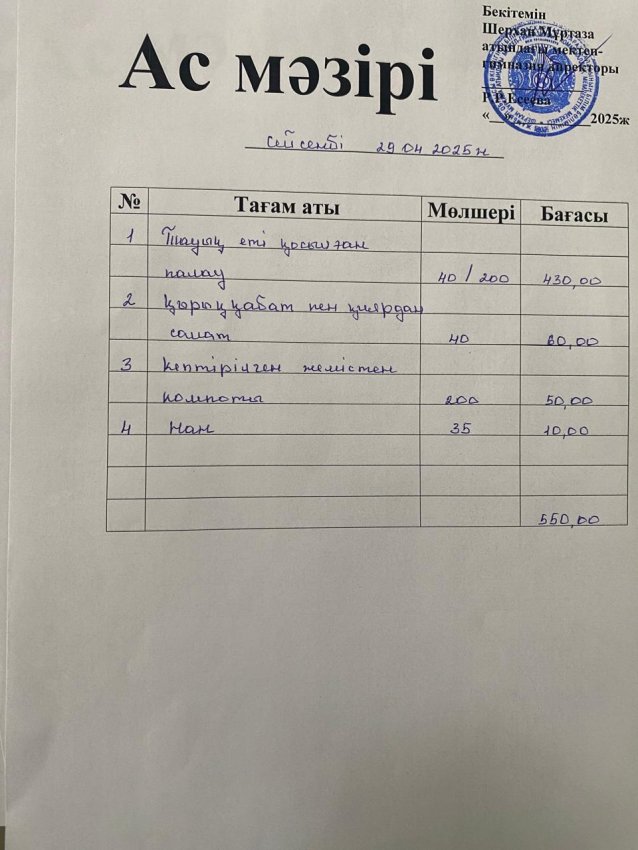 Бекітемін
Шерхан Мұртаза
атындағы мектеп-
гимназия директоры
Р.Р.Есеева
«____»____________2025ж
Ас мәзірі
сейсенбі 29 04 2025 ж
№ Тағам аты Мөлшері Бағасы
1 Тауық еті қосылған
палау 40 / 200 430,00
2 Қырыққабат пен қиярдан
салат 40 60,00
3 Кептірілген жемістен
компоты 200 50,00
4 Нан 35 10,00
550,00